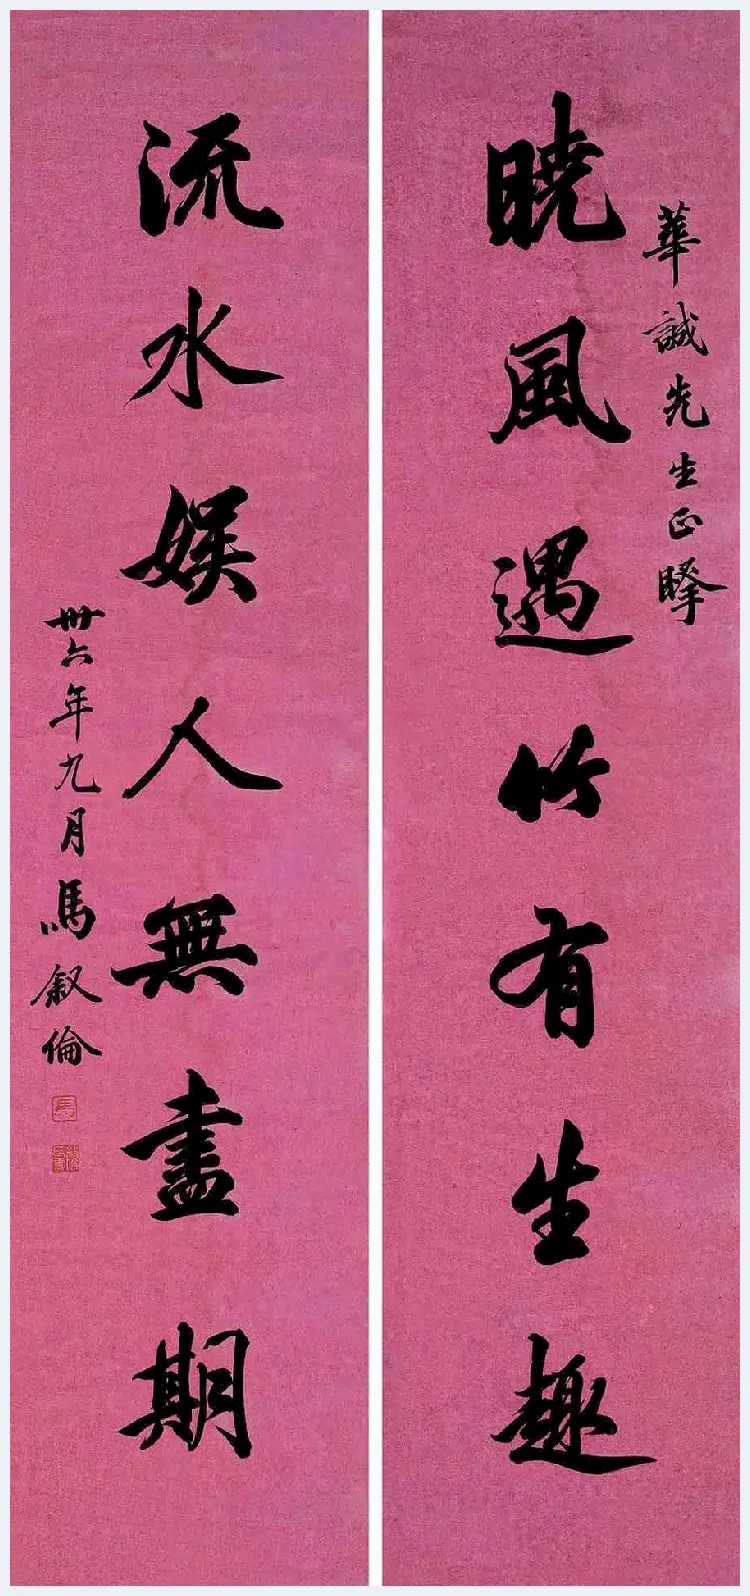 華誠先生正擥
曉風遇竹有生趣
流水娛人無盡期
卅六年九月馬叙倫